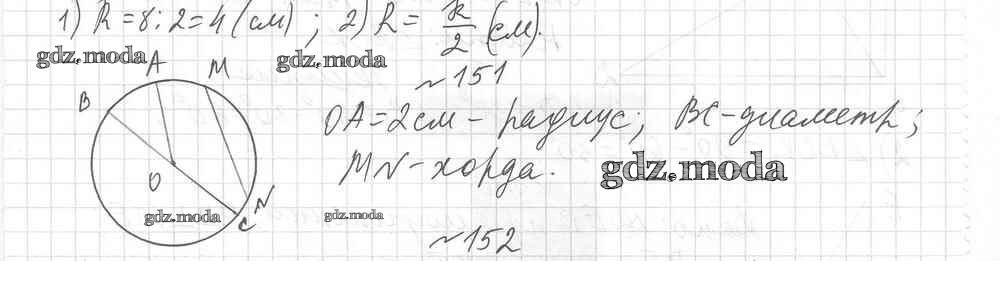 1) R = 8 : 2 = 4 (см) ; 2) R = k/2 (см).
gdz.moda gdz.moda
№151
A M
B
OA = 2см - радиус; BC - диаметр;
MN - хорда. gdz.moda
O
N
C
gdz.moda gdz.moda
№152